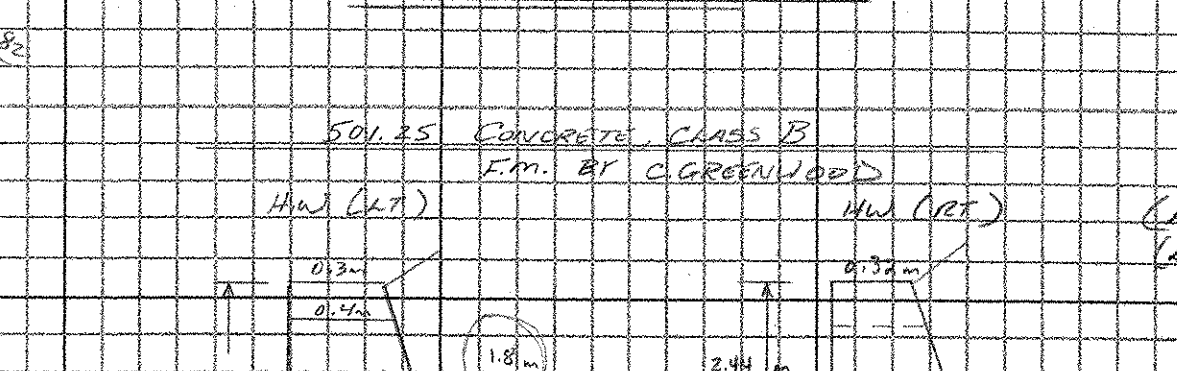 82
501.25 CONCRETE, CLASS B
F.M. BY C. GREENWOOD
HW (LT)
HW (RT)
0.3m
0.32m
0.4m
1.8 m
2.44 m